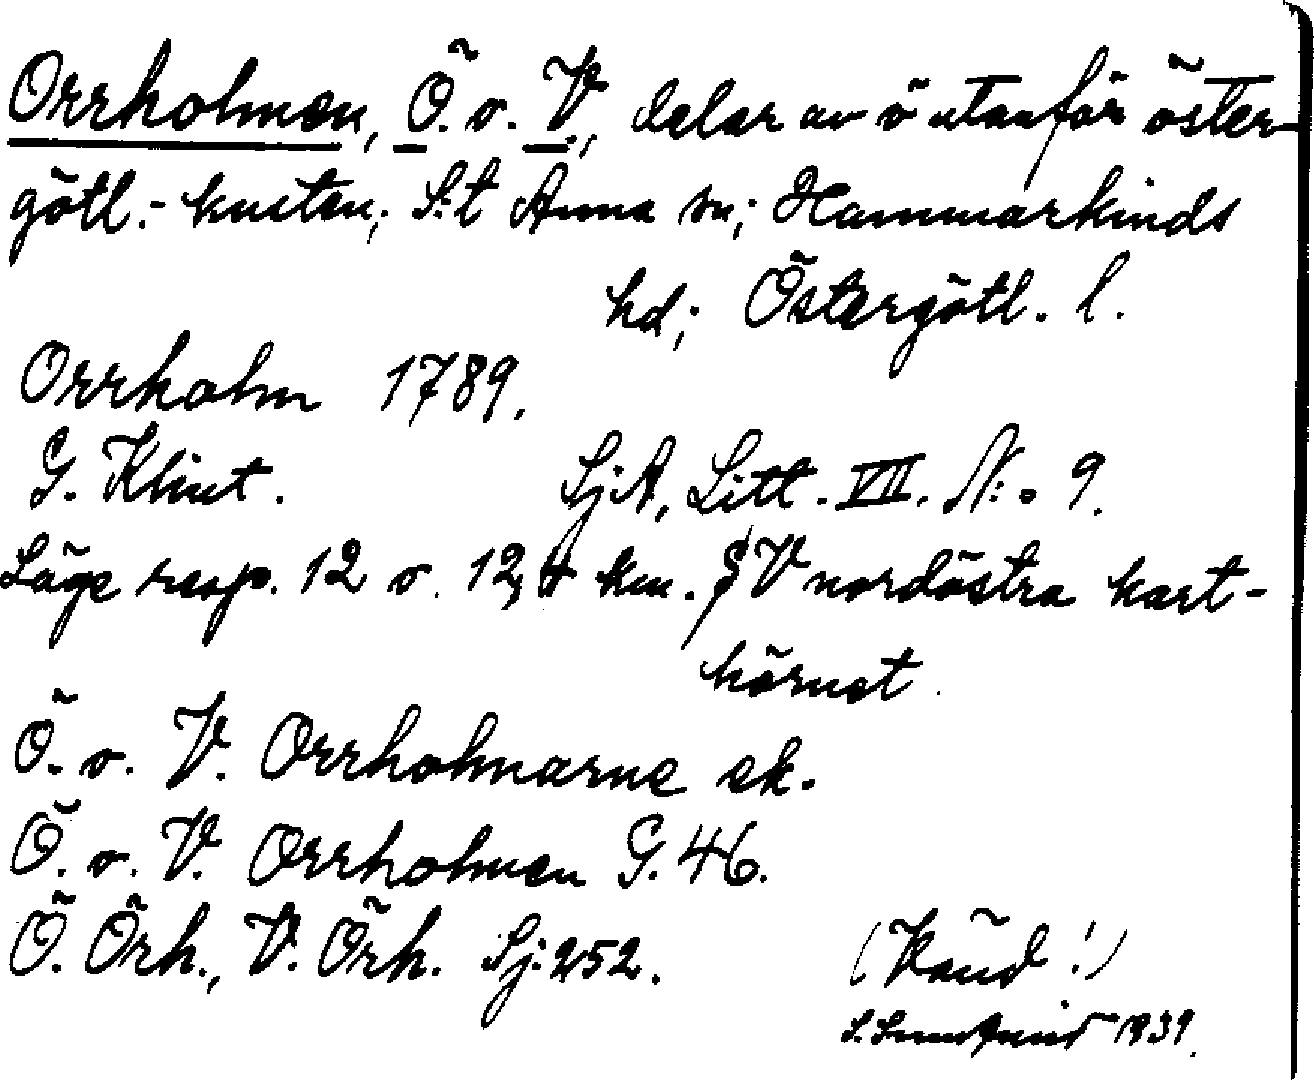 Orrholmen, Ö. o. V., delar av ö utanför öster-
götl.- kusten; S:t Anna sn; Hammarkinds
hd; Östergötl. l.
Orrholm 1789.
G. Klint. SjA, Litt. VII. N:o 9.
Läge resp. 12 o. 12, km. SV nordöstra kart-
hörnet.
Ö. o. V. Orrholmarne ek.
Ö. o. V. Orrholmen G. 46.
Ö. Örh., V. Örh. Sj: 252.
(Känd!)
1939.